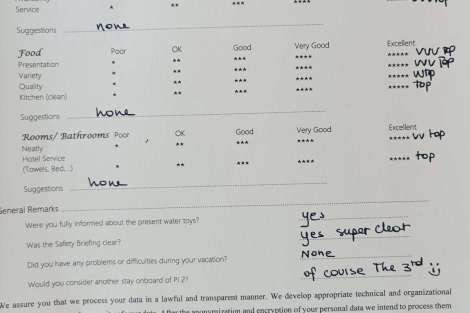 Service * ** *** ****
Suggestions none
Food Poor OK Good Very Good Excellent
Presentation * ** *** **** ***** vvv top
Variety * ** *** **** ***** vvv top
Quality * ** *** **** ***** top
Kitchen (clean) * ** *** **** ***** top
Suggestions none
Rooms/ Bathrooms Poor OK Good Very Good Excellent
Neatly * ** *** **** ***** vv top
Hotel Service
(Towels, Bed,...) * ** *** **** ***** top
Suggestions none
General Remarks
Were you fully informed about the present water toys? yes
Was the Safety Briefing clear? yes super clear
Did you have any problems or difficulties during your vacation? None
Would you consider another stay onboard of Pi 2? of course The 3rd
We assure you that we process your data in a lawful and transparent manner. We develop appropriate technical and organizational
After the anonymization and encryption of your personal data we intend to process them